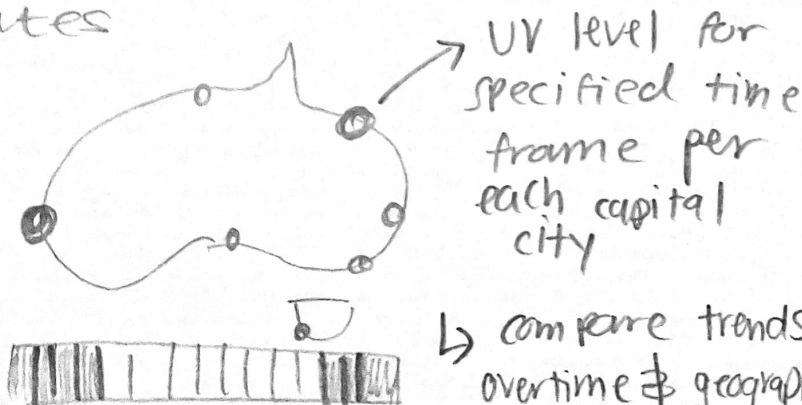 utes
UV level for
specified time
frame per
each capital
city
↳ compare trends
overtime & geograph